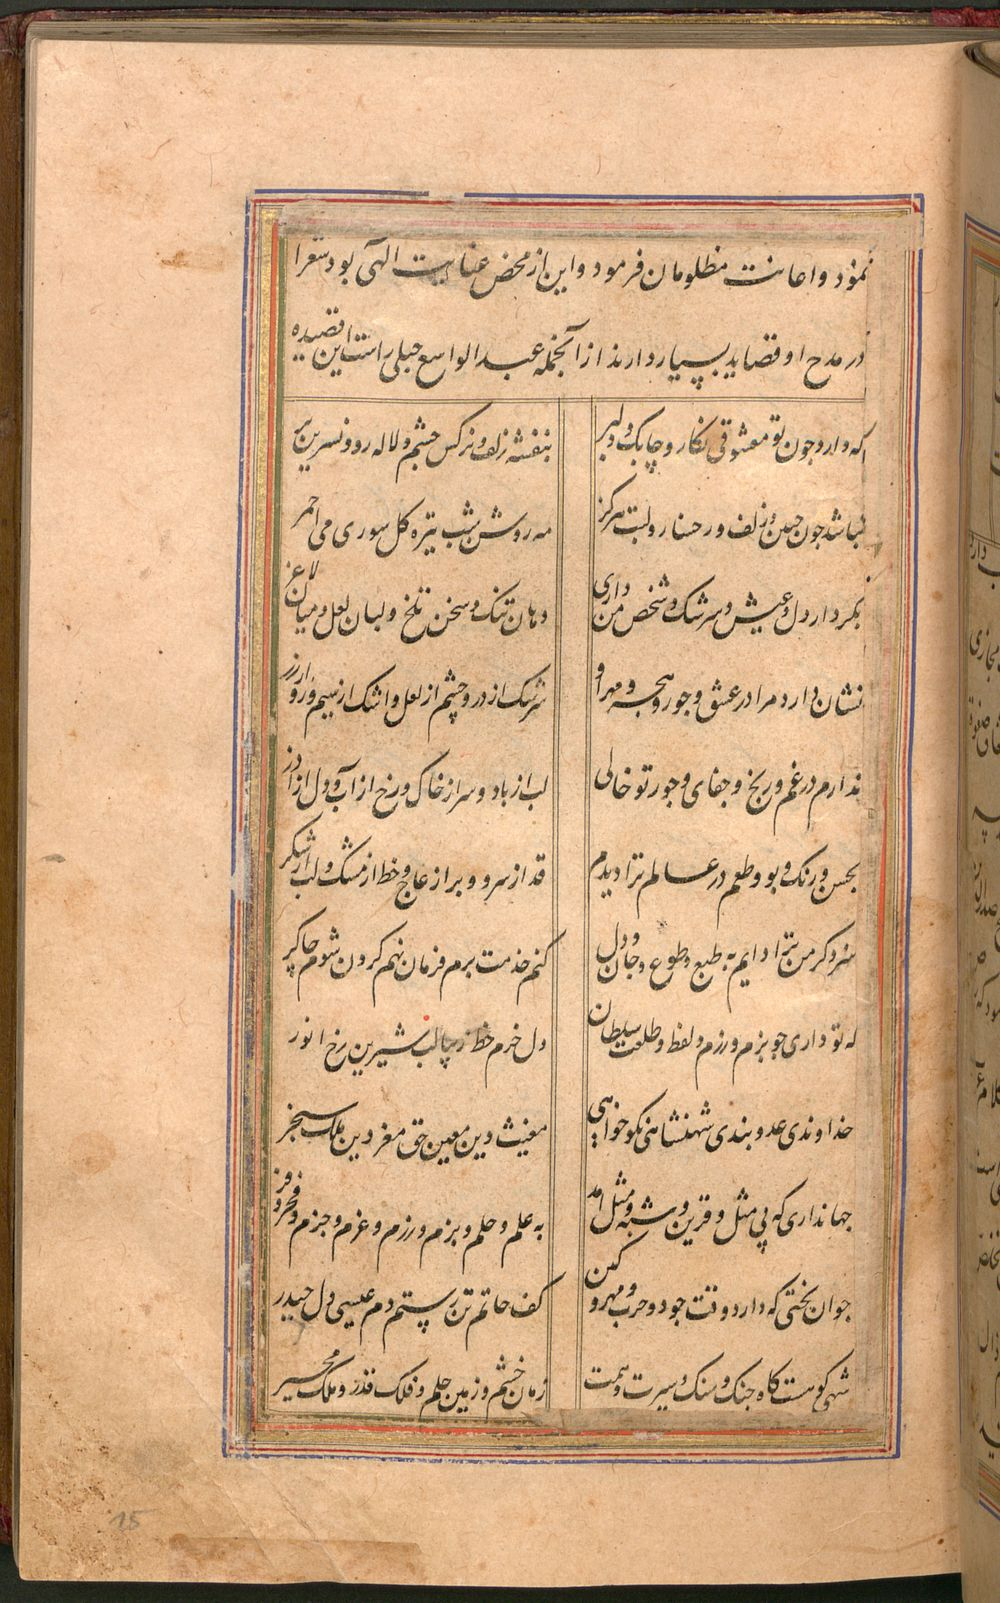 نمود و اعانت مظلومان فرمود و این از محض عنایت الهی بود شعرا
در مدح او قصاید بسیار دارند از آنجمله عبد الواسع جبلی راست این قصیده
که دارد چون تو معشوقی نکار و چابک و دلبر
بنفشه زلف و نرکس چشم و لاله رو و نسرین بر
نباشد چون جبین و زلف و رخسار و لبت هرکز
مه روشن شب تیره کل سوری می احمر
بکردار دل و عیش و سرشک و شخص من داری
دهان تنک و سخن تلخ و لبان لعل و میان لاغر
نشان دارد مرا در عشق و جور و هجر و مهر او
سرشک از در و چشم از لعل و اشک از سیم و رو از زر
ندارم در غم و رنج و جفای و جور تو خالی
لب از باد و سر از خاک و رخ از آب و دل از آذر
بحسن و رنک و بو و طعم در عالم ترا دیدم
قد از سرو و بر از عاج و خط از مشک و لب از شکر
سزد کر من ترا دایم به طبع و طوع و جان و دل
کنم خدمت برم فرمان نهم کردن شوم چاکر
که تو داری چو بزم و رزم و لفظ و طلعت سلطان
دل خرم خط زیبا لب شیرین رخ انور
خداوندی عدو بندی شهنشاهی نکو خواهی
مغیث دین معین حق معز دین ملک سنجر
جهانداری که بی مثل و قرین و شبه و مثل آمد
به علم و حلم و بزم و رزم و عزم و جزم و فخر و فر
جوان بختی که دارد وقت جود و حرب و مهر و کین
کف حاتم تن رستم دم عیسی دل حیدر
شهی کو هست کاه جنک و سنک و سیرت و همت
زمان خشم و زمین حلم و فلک قدر و ملک مخبر
15